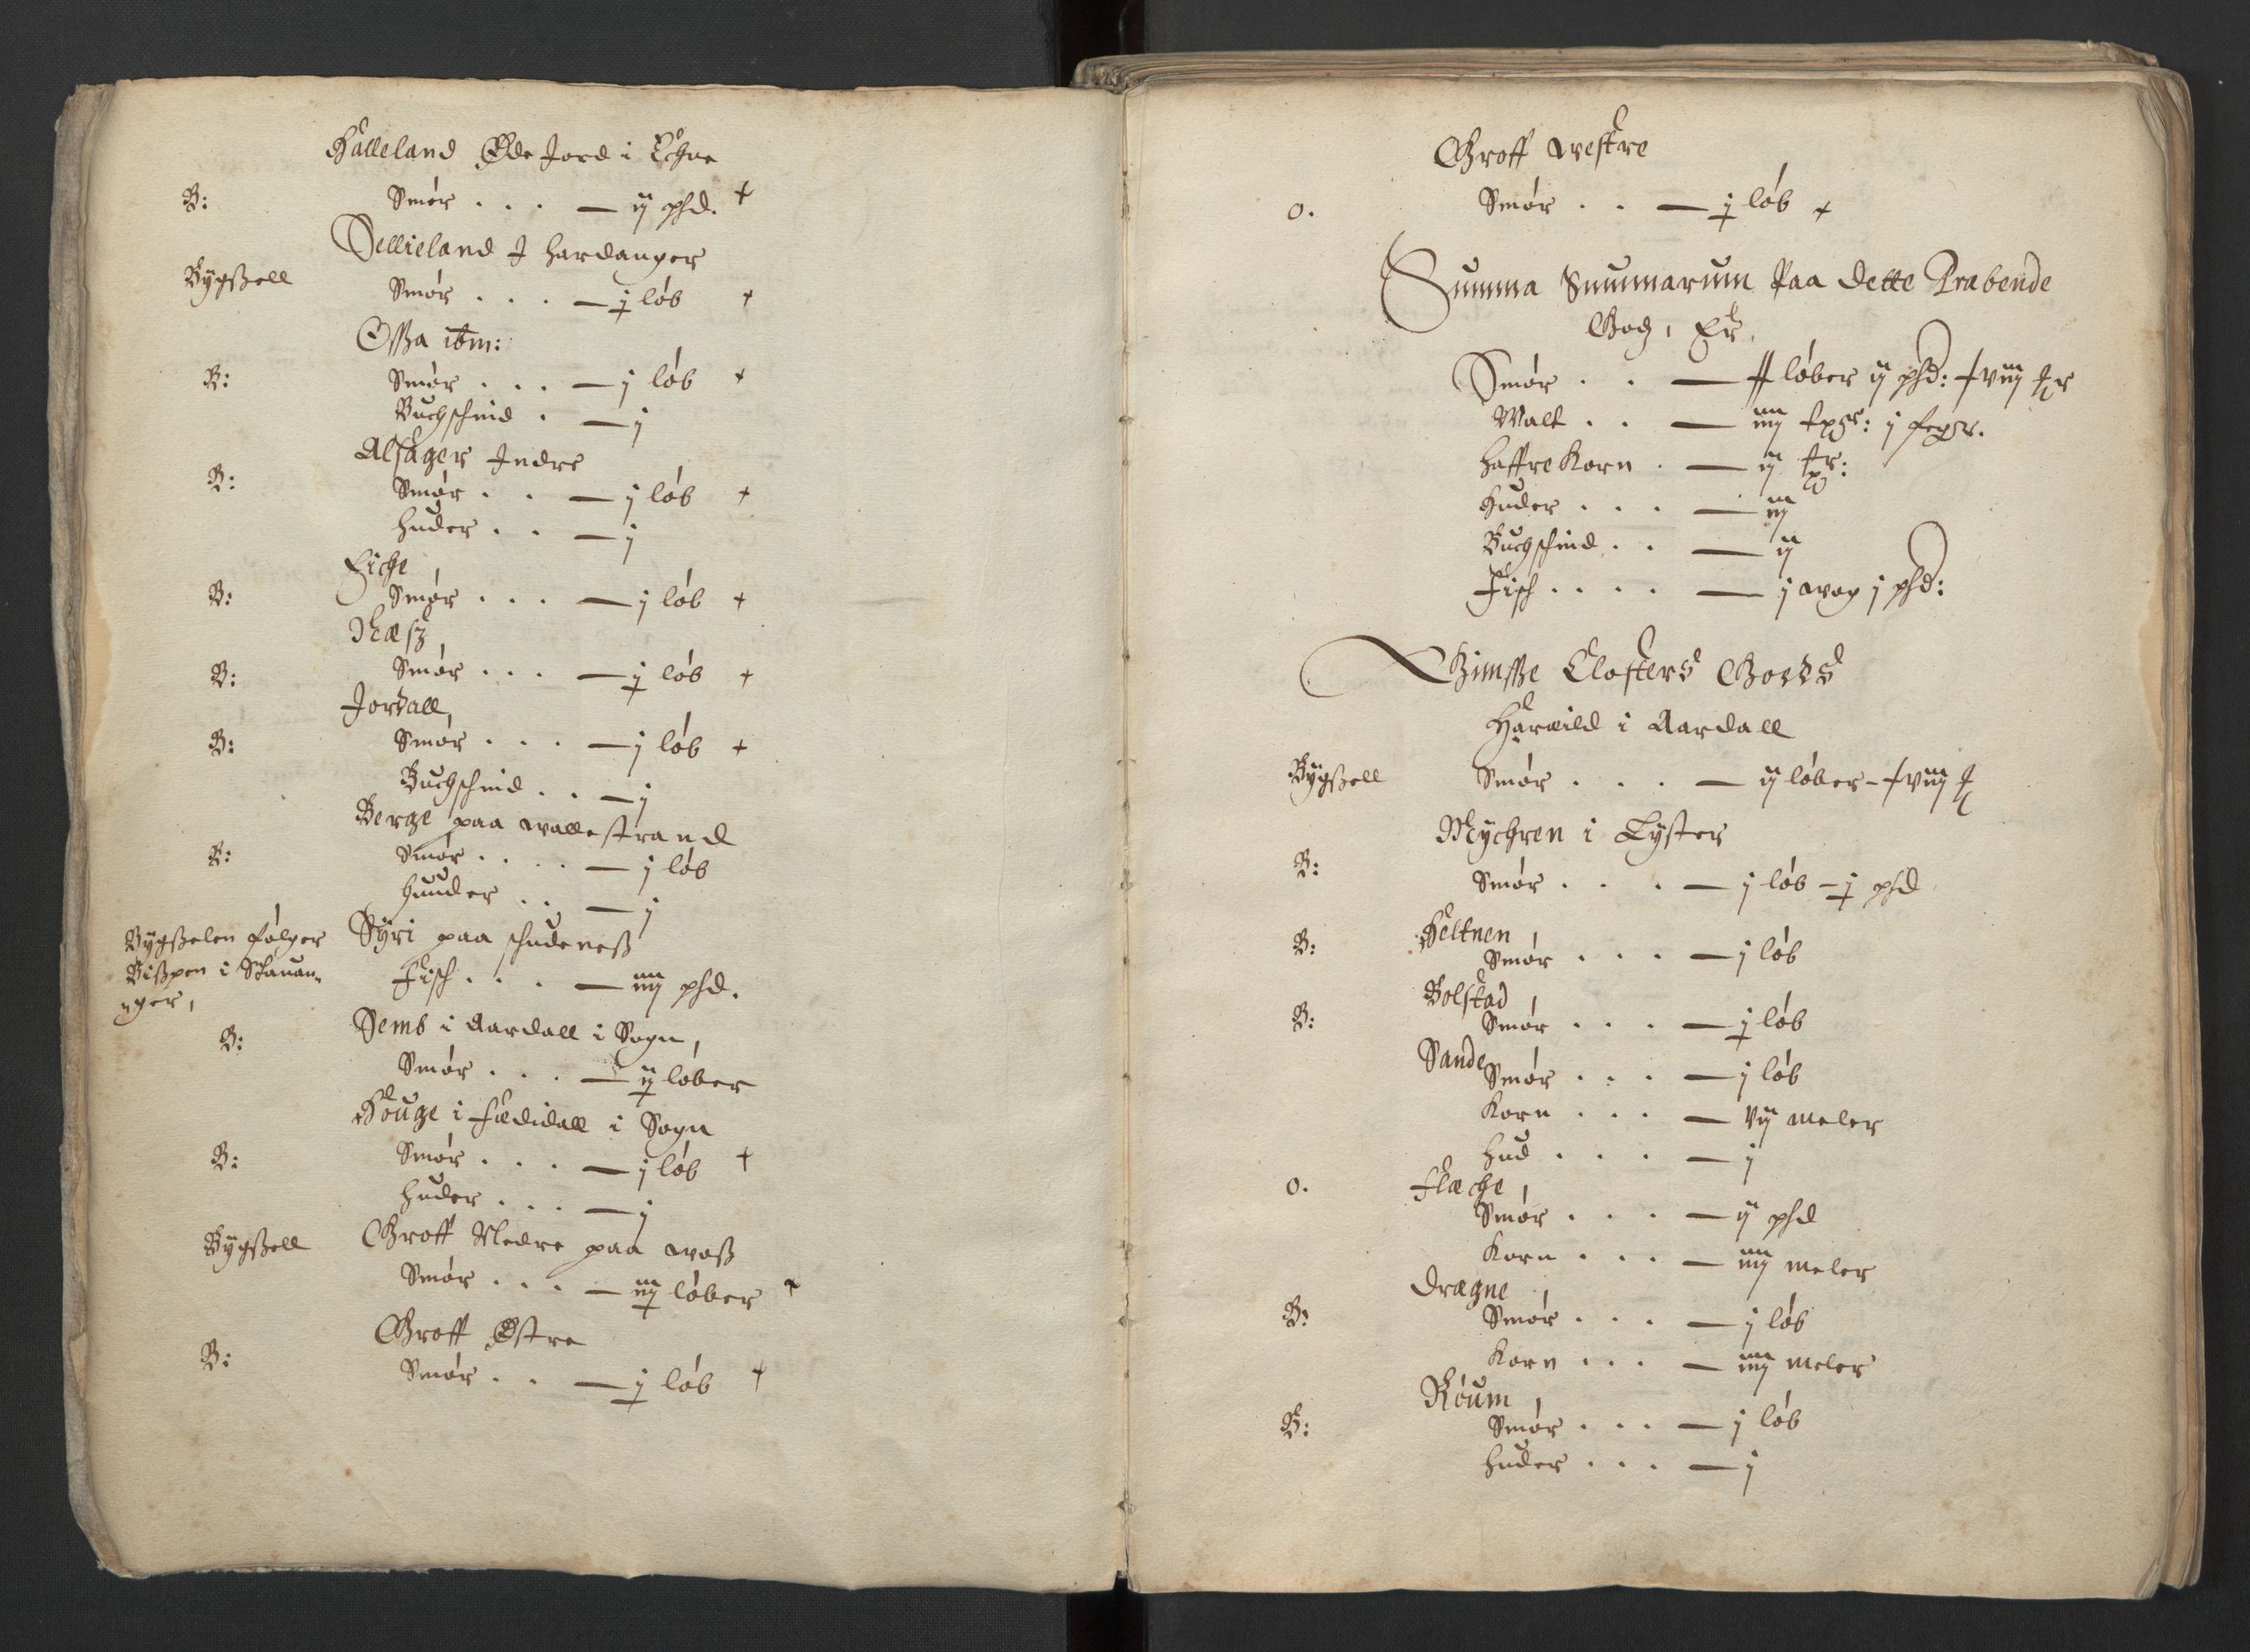 Halleland Øde Jord i Echre
B: Smør . . . — ij phd. +
Sellieland I Hardanger
Bygßell Smør . . . — j løb +
Offza ibm:
B: Smør . . . — j løb +
Buchschind . — j
Alsager Indre
B: Smør . . — j løb +
huder . . — j
Eiche
B: Smør . . . — j løb +
Næsz,
B: Smør . . . — j løb +
Jordall,
B: Smør . . . — j løb +
Buchschind . . — j
Berge paa wallestrand
B: Smør . . . . — j løb
huuder . . — j
Bygßelen følger
Bißpen i Stauan„
„ger,
Syri paa schudeneß
Fisch . . . — iiij phd.
Semb i Aardall i Sogn,
B: Smør . . . — ij løber
Houge i Fædidall i Sogn
B: Smør . . . — j løb +
huder . . . — j
Bygßell Groff Nedre paa woß
Smør . . . — iij løber +
Groff Østre
B: Smør . . — j løb +
Groff westre
o. Smør . . — j løb +
Summa Summarum Paa dette Præbende
Godz, Er,
Smør . . — løber ij phd:
Malt . . — iiij
haffre Korn . — ij
huder . . . — iij
Buchschind . . — ij
Fisch . . . . — j wog j phd:
Gimsze Closters Godes
Haræild i Aardall
Bygßell Smør . . . — ij løber -
Mychren i Lyster
B: Smør . . . — j løb - j phd
Heltnen,
B: Smør . . . — j løb
Bolstad,
B: Smør . . . — j løb
Sande
Smør . . . — j løb
Korn . . . — vij meler
hud . . . — j
o. Flæche,
Smør . . . — ij phd
Korn . . . — iiij meler
Drægne
B: Smør . . . — j løb
Korn . . . — iiij meler
Róum,
B: Smør . . . — j løb
huder . . . — j